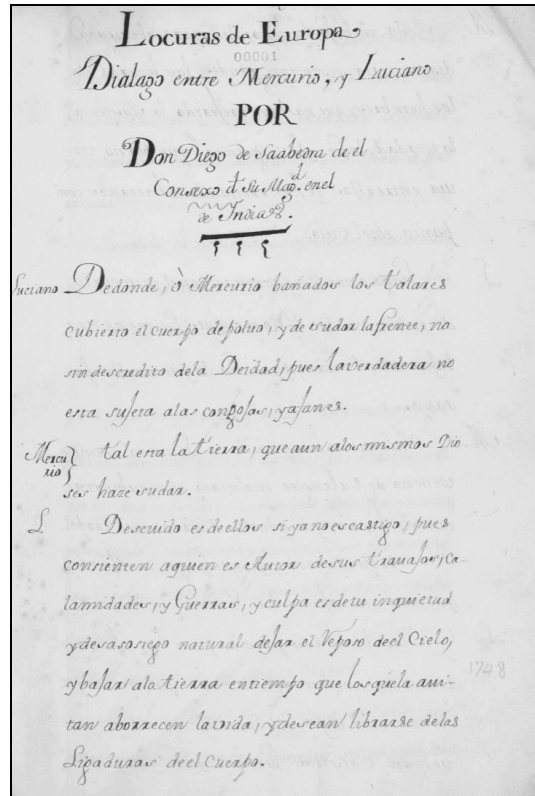 Locuras de Europa
00001
Dialago entre Mercurio, y Luciano
POR
Don Diego de Saabedra de el
Consexo d.l Su Mag.d en el
de Indias.
Luciano Dedonde, ò Mercurio bañados los talares
cubierto el cuerpo de polvo, y de sudor la frente, no
sin descredito dela Deidad, pues la verdadera no
esta sujeta alas congojas, y afanes.
Mercurio tal esta la tierra, que aun alos mismos Dio
ses haze sudar.
L Descuido es de ellos si ya no es castigo, pues
consienten aquien es Autor de sus travajos, ca-
lamidades, y Guerras, y culpa es de tu inquietud
y desasosiego natural dejar el Reposo de el Cielo,
y bajar ala tierra entiempo que los q̃ la avi-
tan aborrecen la vida, y desean librarse de las
Ligaduras de el Cuerpo.
1748